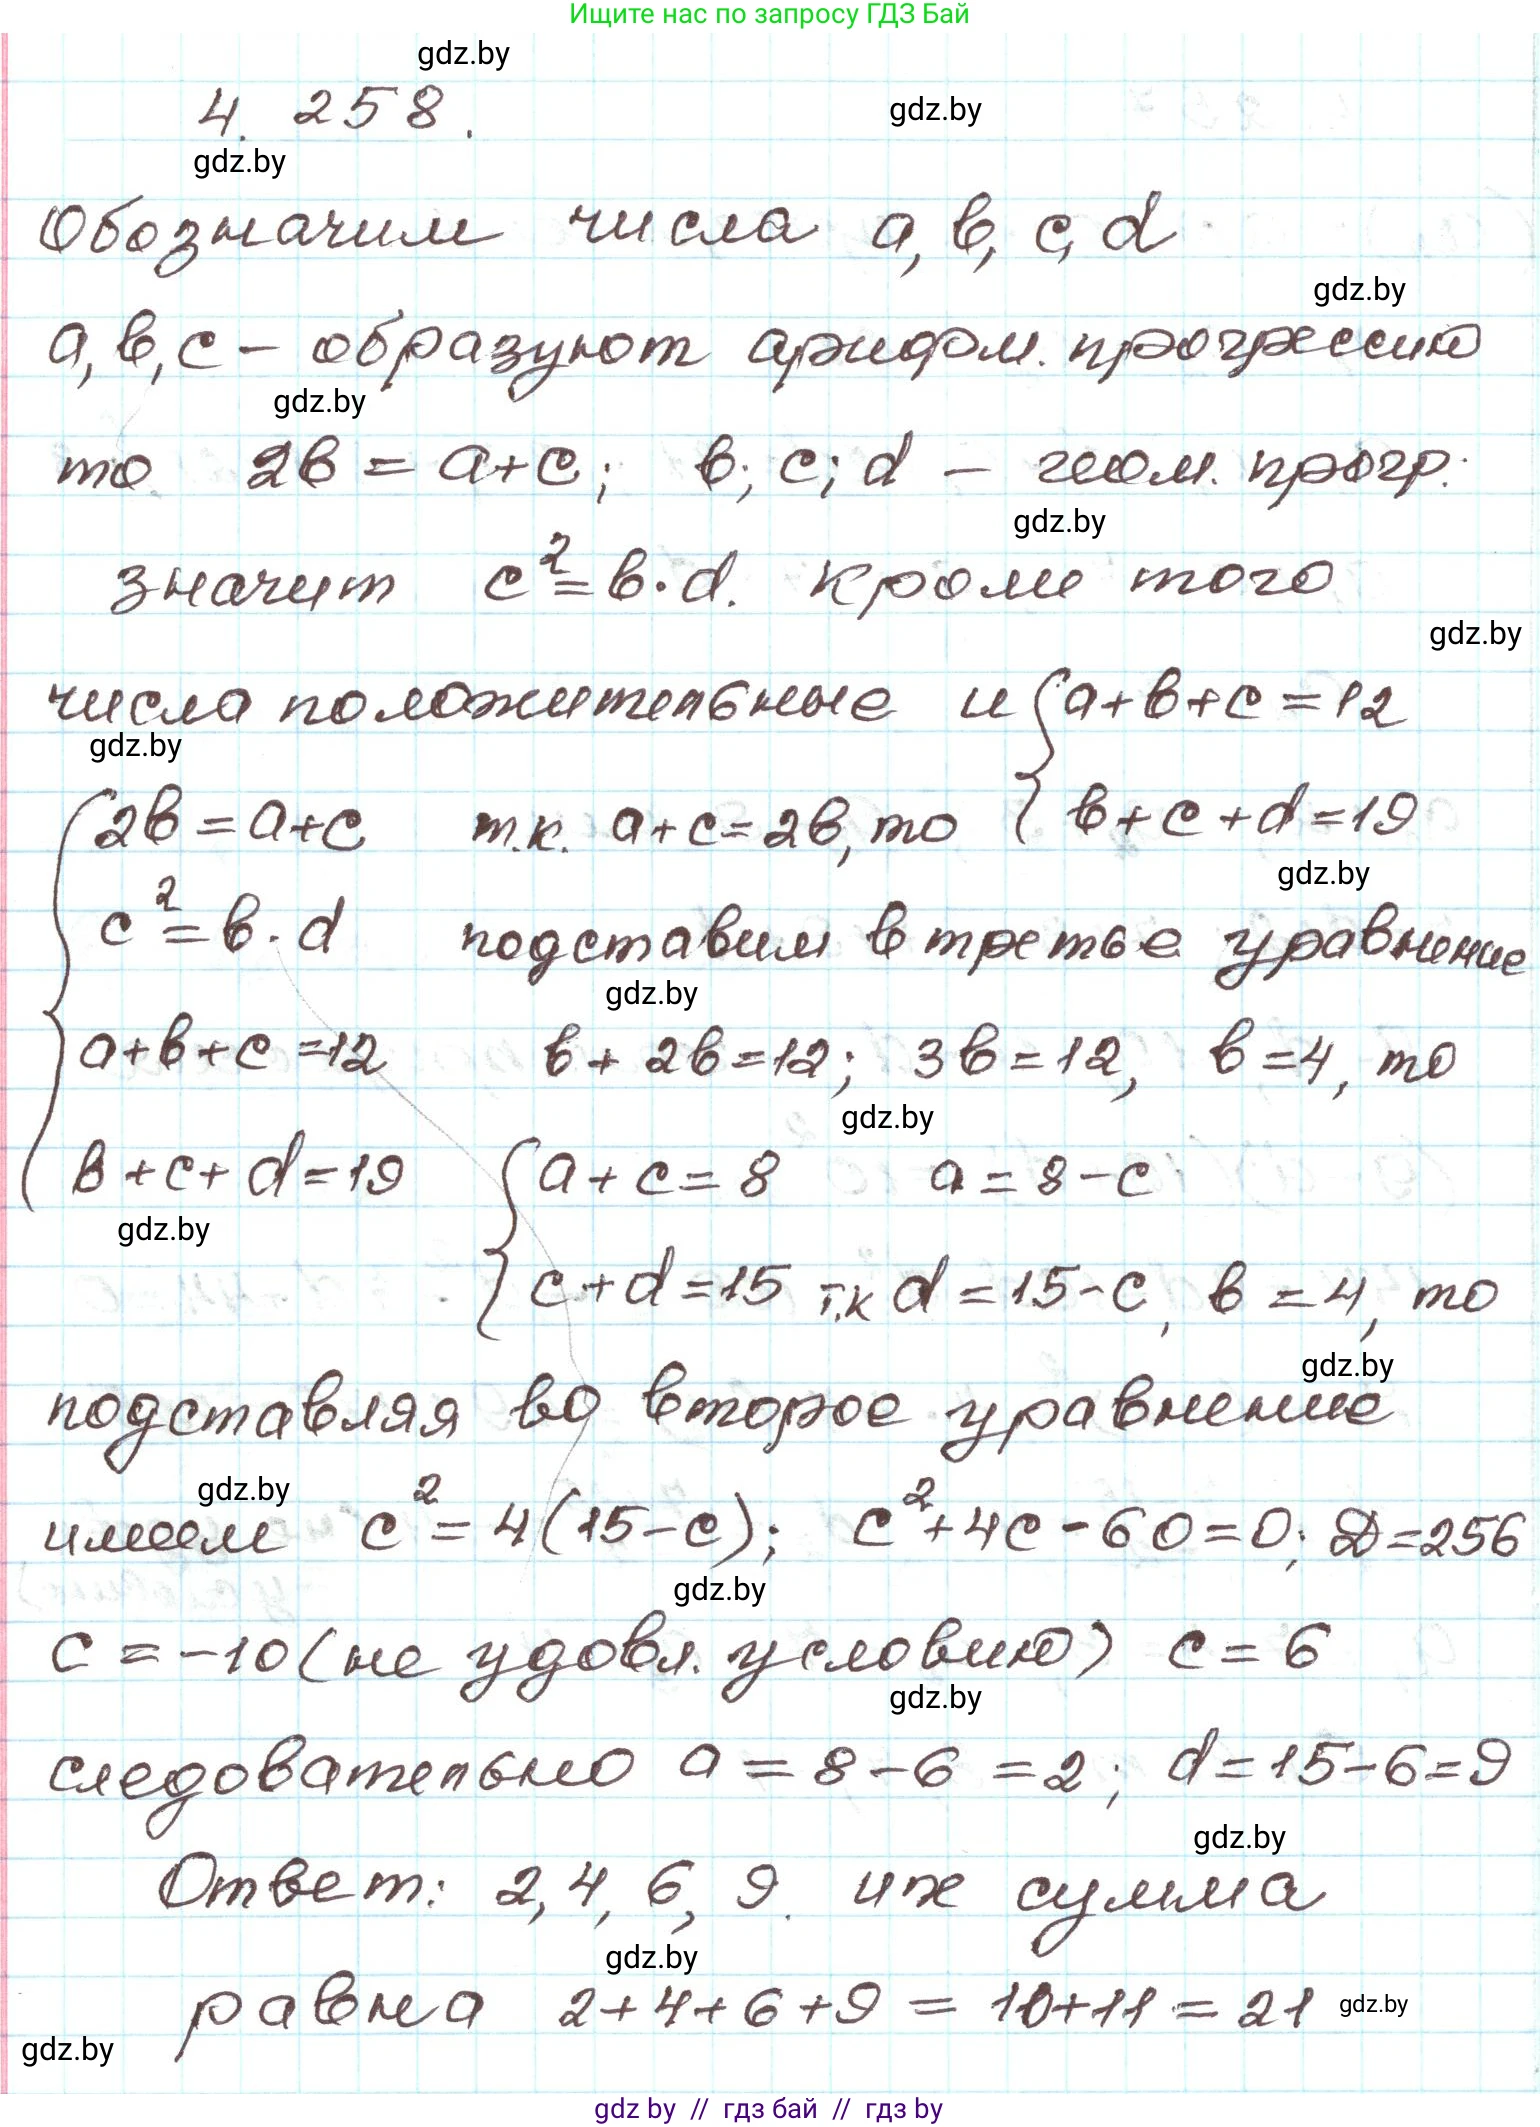 Ищите нас по запросу ГДЗ Бай
gdz.by
4. 258.
gdz.by
gdz.by
Обозначим числа a, b, c, d
gdz.by
a, b, c – образуют арифм. прогрессию
gdz.by
то 2b = a+c; b; c; d – геом. прогр.
gdz.by
значит c² = b·d. кроме того
gdz.by
числа положительные и { a+b+c=12
gdz.by
{ 2b=a+c т.к. a+c=2b, то b+c+d=19
gdz.by
c²=b·d подставим в третье уравнение
gdz.by
a+b+c=12 b+2b=12; 3b=12, b=4, то
gdz.by
b+c+d=19 { a+c=8 a=8-c
gdz.by
c+d=15 т.к d=15-c, b=4, то
gdz.by
подставляя во второе уравнение
gdz.by
имеем c²=4(15-c); c²+4c-60=0; D=256
gdz.by
c=-10 (не удовл. условию) c=6
gdz.by
следовательно a=8-6=2; d=15-6=9
gdz.by
Ответ: 2, 4, 6, 9. их сумма
gdz.by
равна 2+4+6+9=10+11=21
gdz.by
gdz.by
gdz by // гдз бай // гдз by